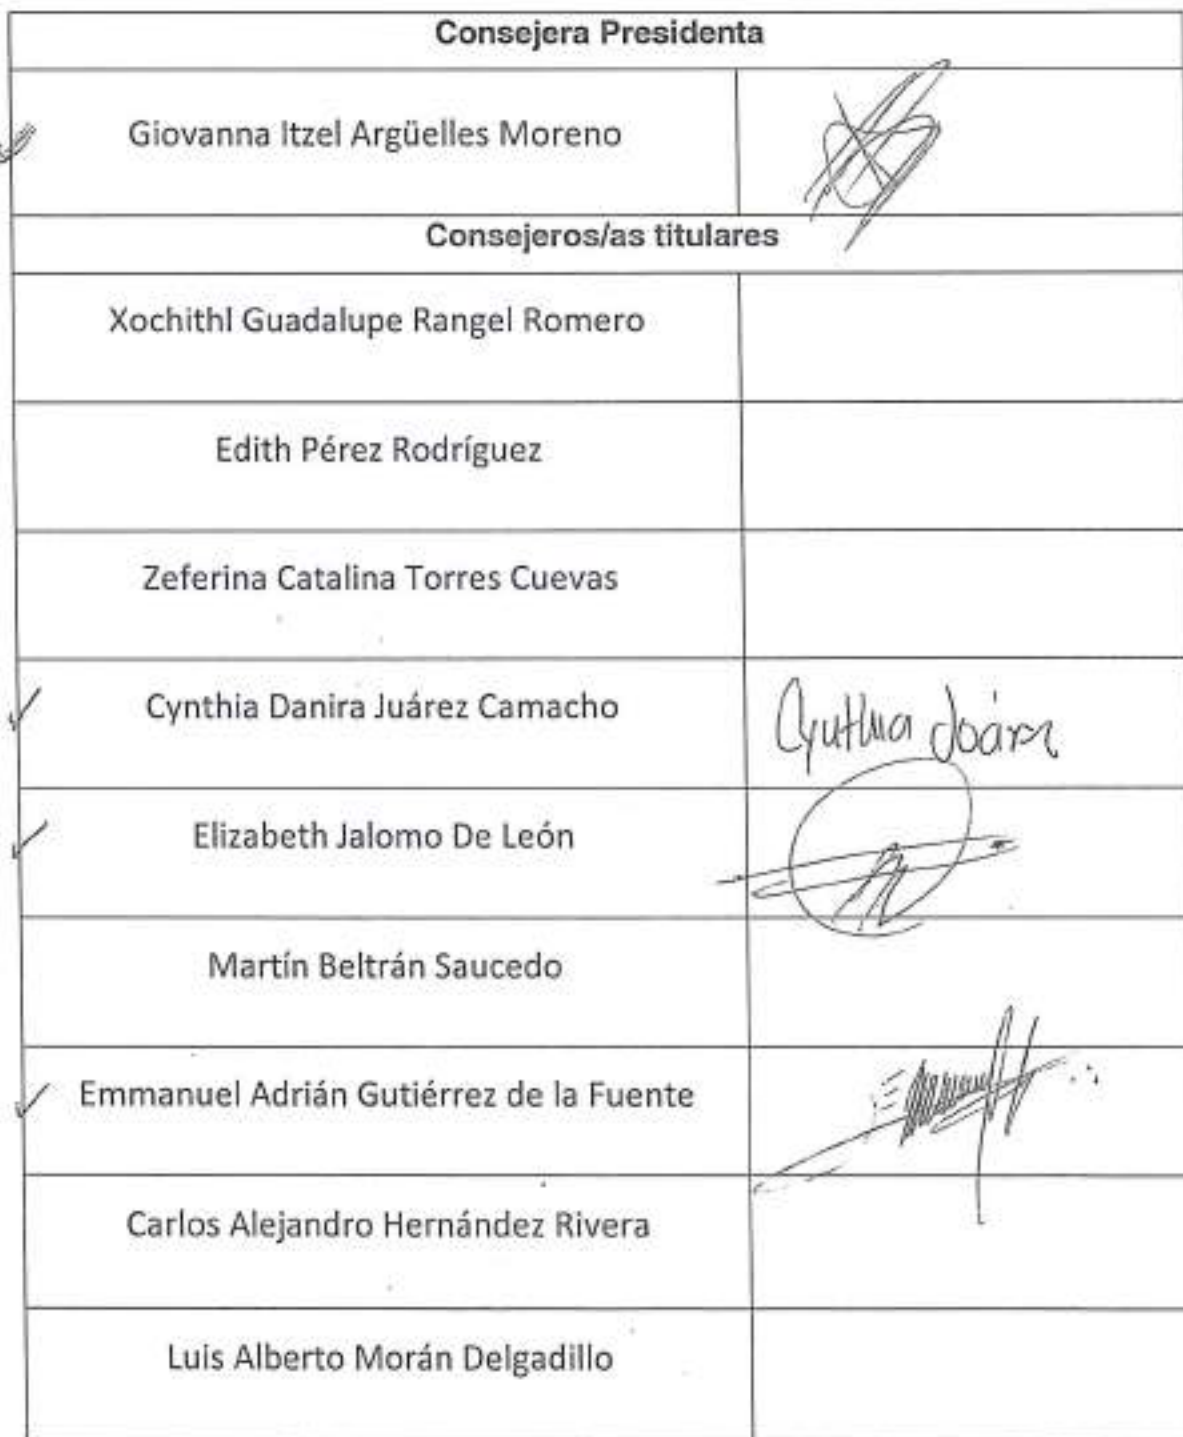 Consejera Presidenta
Giovanna Itzel Argüelles Moreno
Consejeros/as titulares
Xochithl Guadalupe Rangel Romero
Edith Pérez Rodríguez
Zeferina Catalina Torres Cuevas
Cynthia Danira Juárez Camacho
Cynthia Joárez
Elizabeth Jalomo De León
Martín Beltrán Saucedo
Emmanuel Adrián Gutiérrez de la Fuente
Carlos Alejandro Hernández Rivera
Luis Alberto Morán Delgadillo